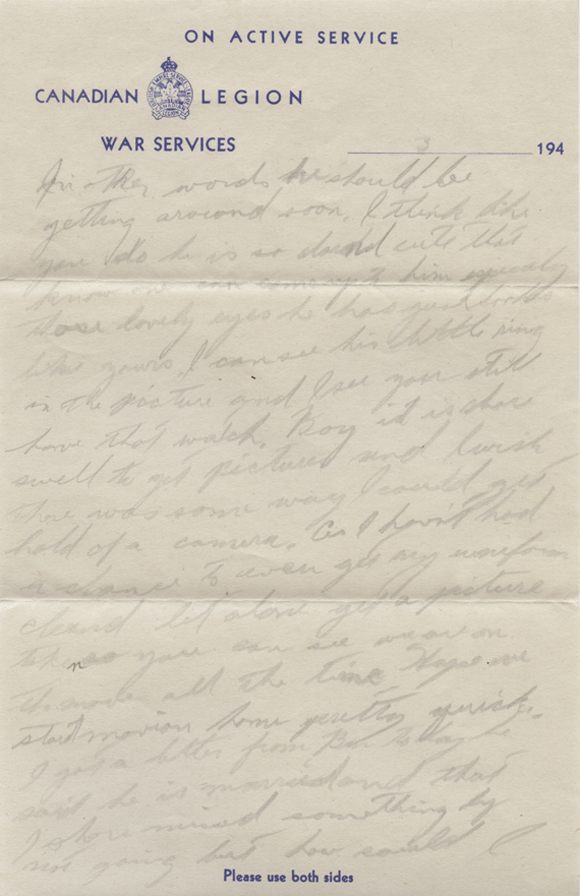 ON ACTIVE SERVICE
CANADIAN LEGION
WAR SERVICES
3 194
In other words he should be
getting around soon. I think like
you do he is so darnd cute that
know one can come up to him especially
those lovely eyes he has just looks
like yours, I can see his little ring
in the picture and I see your still
have that watch. Boy it is shore
swell to get pictures and I wish
there was some way I could get
hold of a camera. As I havn't had
a chance to even get my uniform
cleand let alone get a picture
taken so you can see we are on
the move all the time Hope we
start movion home pretty quick.
I got a letter from today he
said he is married and that
I shore missed something by
not going but how could I
Please use both sides